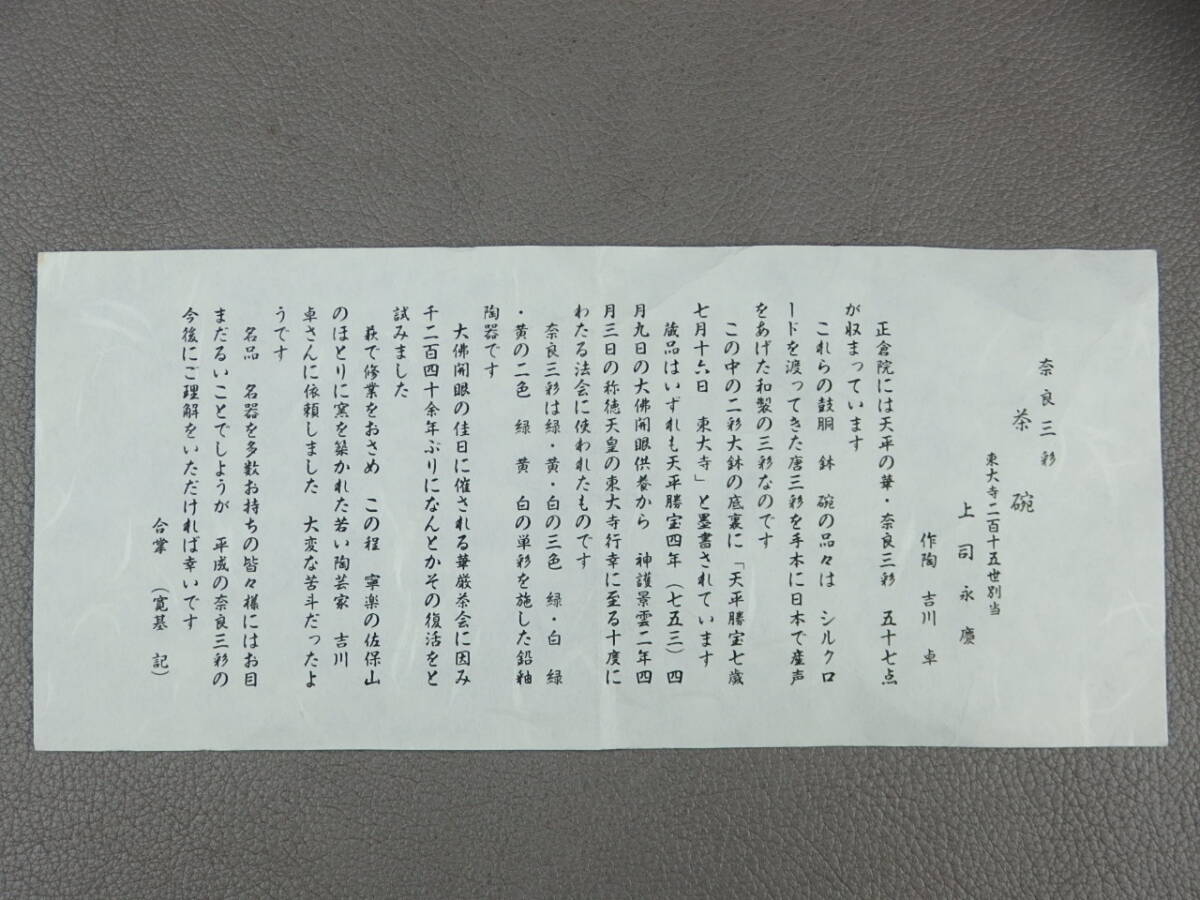 奈良三彩
茶碗
東大寺二百十五世別当
上司永慶
作陶 吉川 卓
正倉院には天平の華・奈良三彩 五十七点
が収まっています
これらの鼓胴 鉢 碗の品々は シルクロ
ードを渡ってきた唐三彩を手本に日本で産声
をあげた和製の三彩なのです
この中の二彩大鉢の底裏に「天平勝宝七歳
七月十六日 東大寺」と墨書されています
蔵品はいずれも天平勝宝四年(七五三)四
月九日の大佛開眼供養から 神護景雲二年四
月三日の称徳天皇の東大寺行幸に至る十度に
わたる法会に使われたものです
奈良三彩は緑・黄・白の三色 緑・白 緑
・黄の二色 緑 黄 白の単彩を施した鉛釉
陶器です
大佛開眼の佳日に催される華厳茶会に因み
千二百四十余年ぶりになんとかその復活をと
試みました
萩で修業をおさめ この程 寧楽の佐保山
のほとりに窯を築かれた若い陶芸家 吉川
卓さんに依頼しました 大変な苦斗だったよ
うです
名品 名器を多数お持ちの皆々様にはお目
まだるいことでしようが 平成の奈良三彩の
今後にご理解をいただければ幸いです
合掌 (寛基 記)